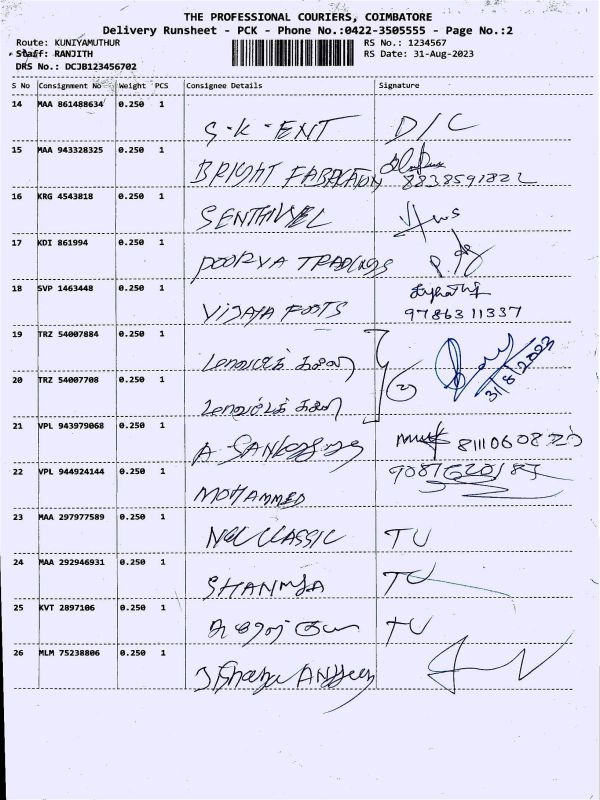 THE PROFESSIONAL COURIERS, COIMBATORE
Delivery Runsheet - PCK - Phone No.:0422-3505555 - Page No.:2
Route: KUNIYAMUTHUR RS No.: 1234567
Staff: RANJITH RS Date: 31-Aug-2023
DRS No.: DCJB123456702
S No Consignment No Weight PCS Consignee Details Signature
14 MAA 861488634 0.250 1 S-K-ENT D/C
15 MAA 943328325 0.250 1 BRIGHT FABRICATION 8838591822
16 KRG 4543818 0.250 1 SENTHIVEL
17 KDI 861994 0.250 1 POORVA TRADINGS
18 SVP 1463448 0.250 1 VIJAYA FOOTS 9786311337
19 TRZ 54007884 0.250 1 31/8/2023
20 TRZ 54007708 0.250 1
21 VPL 943979068 0.250 1 A-
22 VPL 944924144 0.250 1 MOHAMMED
23 MAA 297977589 0.250 1 CLASSIC TU
24 MAA 292946931 0.250 1 TU
25 KVT 2897106 0.250 1 TU
26 MLM 75238806 0.250 1